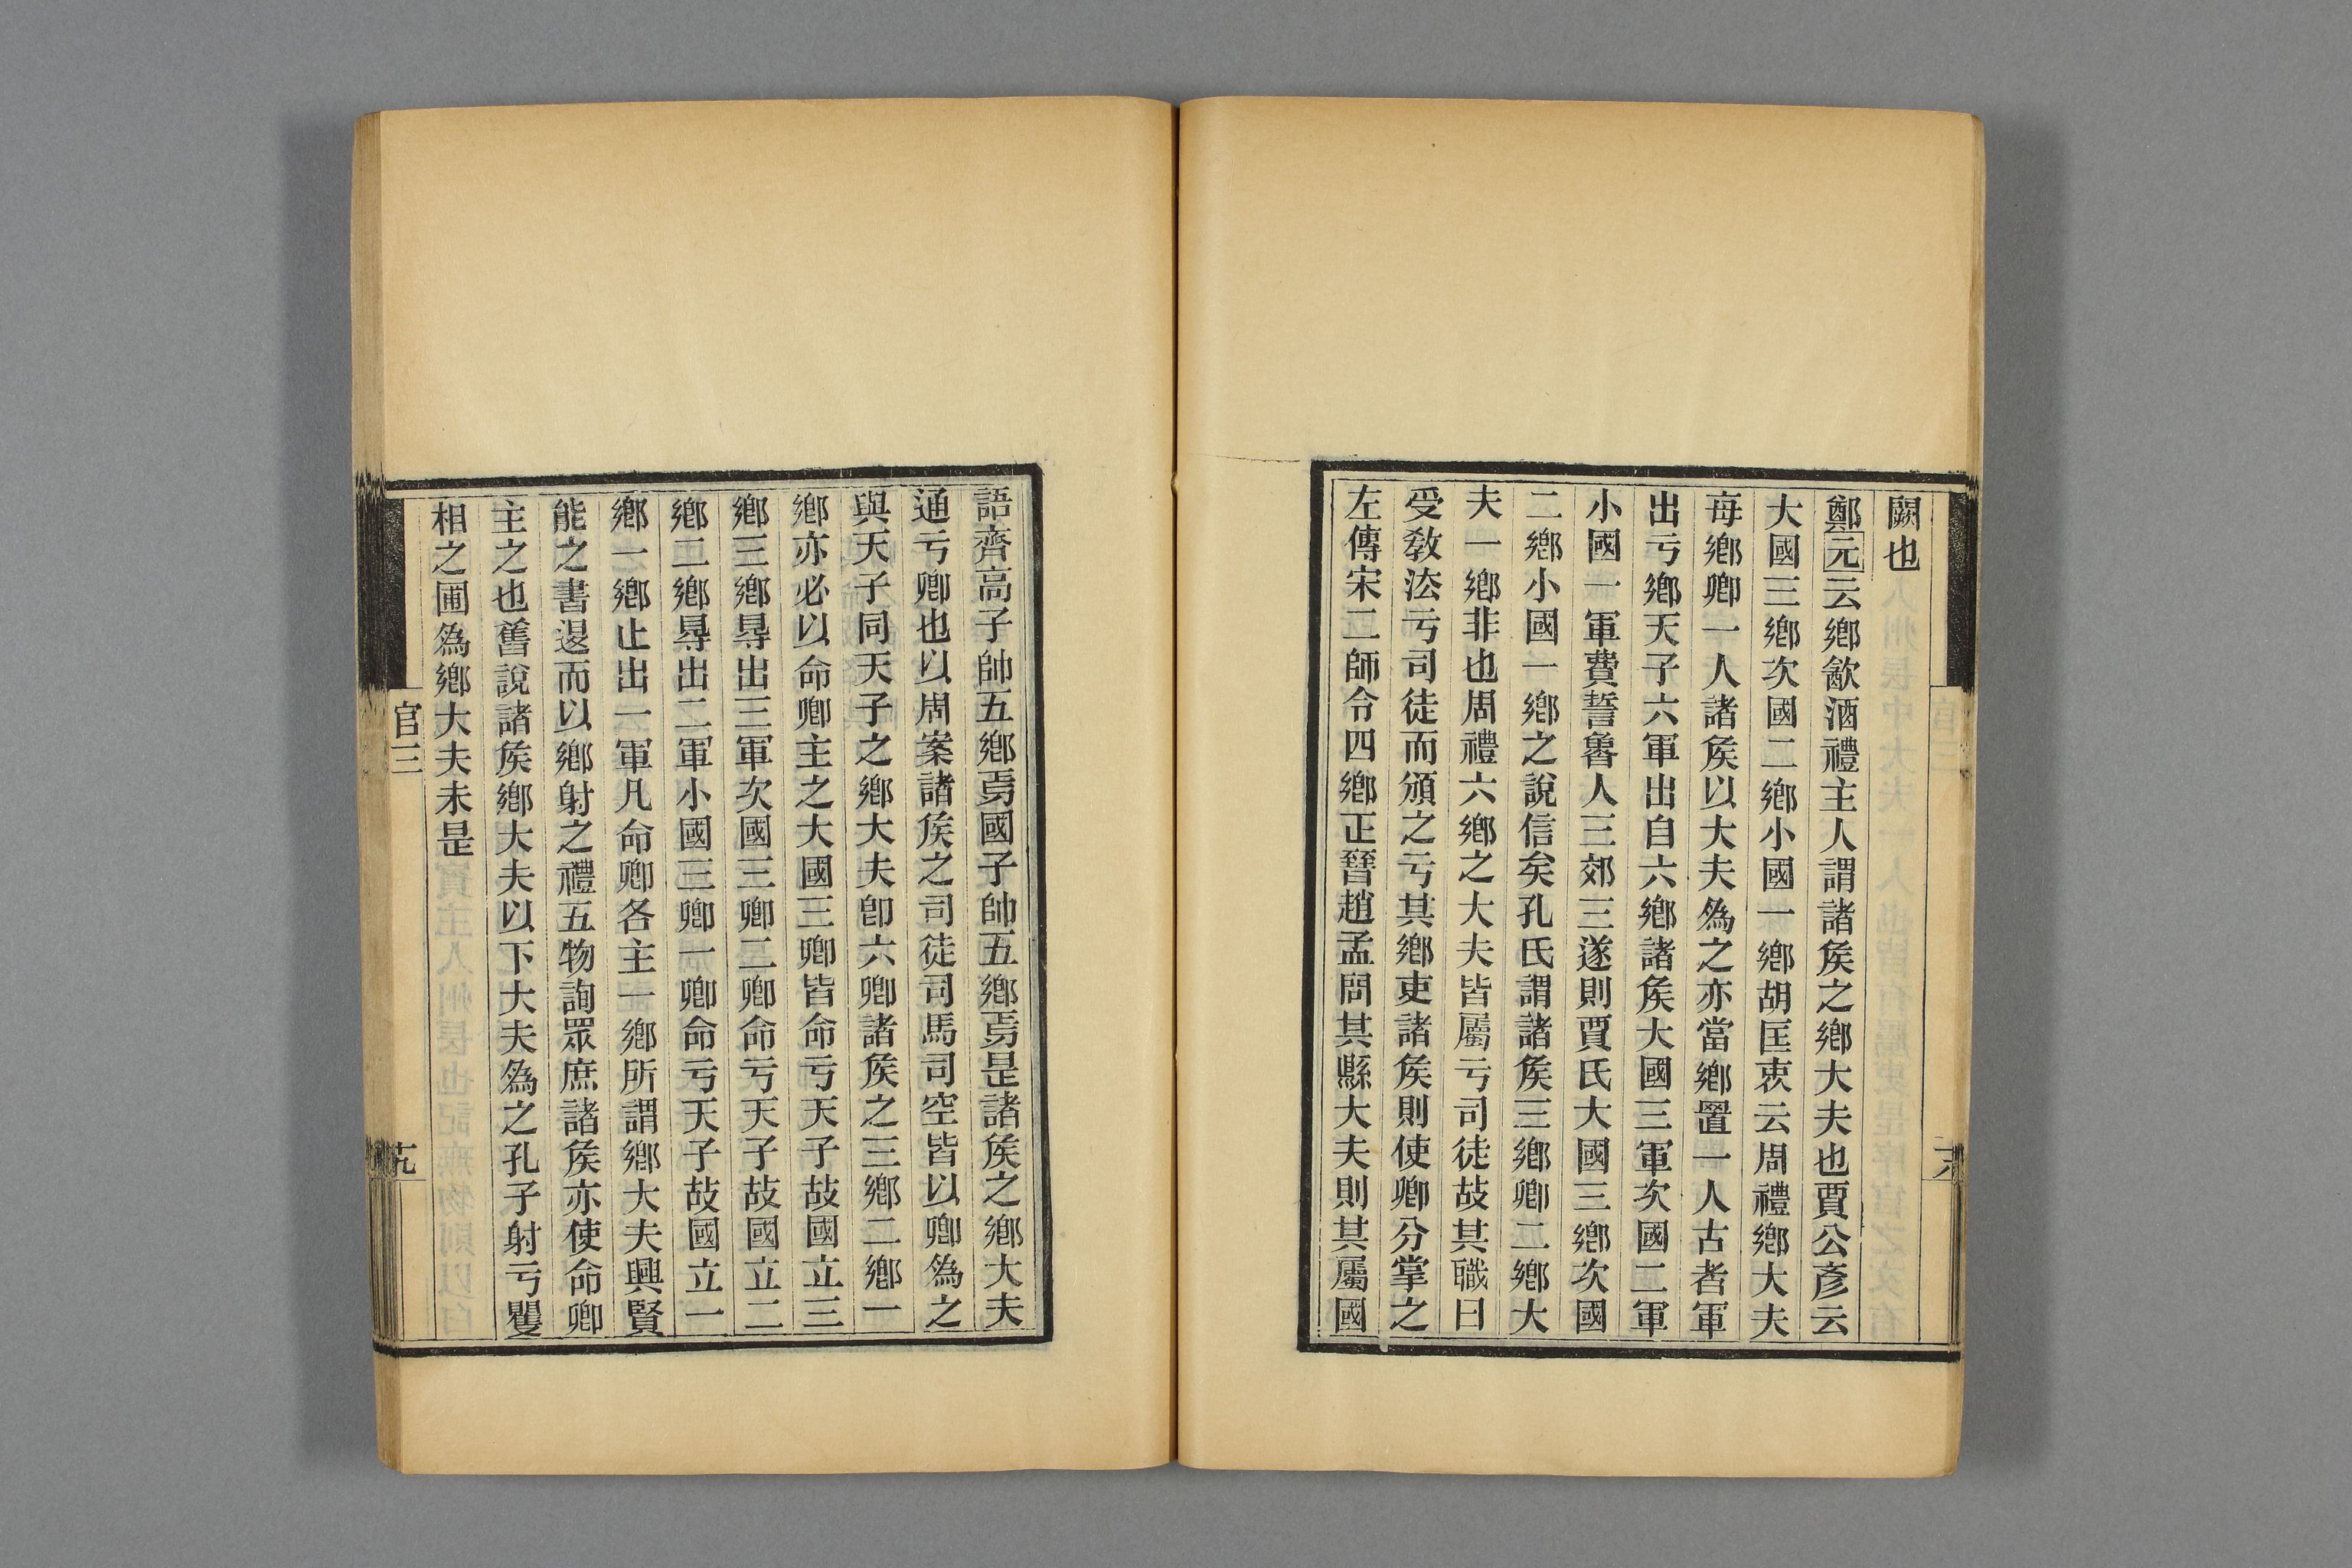 闕也
鄭元云鄉歙酒禮主人謂諸矦之鄉大夫也賈公彥云
大國三鄉次國二鄉小國一鄉胡匡衷云周禮鄉大夫
每鄉卿一人諸矦以大夫爲之亦當鄉置一人古者軍
出亏鄉天子六軍出自六鄉諸矦大國三軍次國二軍
小國一軍費誓魯人三郊三遂則賈氏大國三鄉次國
二鄉小國一鄉之說信矣孔氏謂諸矦三鄉卿二鄉大
夫一鄉非也周禮六鄉之大夫皆屬亏司徒故其職曰
受敎法亏司徒而頒之亏其鄉吏諸矦則使卿分掌之
左傳宋二師令四鄉正晉趙孟問其縣大夫則其屬國
語齊高子帥五鄉焉國子帥五鄉焉是諸矦之鄉大夫
通亏卿也以周案諸矦之司徒司馬司空皆以卿爲之
與天子同天子之鄉大夫卽六卿諸矦之三鄉二鄉一
鄉亦必以命卿主之大國三卿皆命亏天子故國立三
鄉三鄉㝵出三軍次國三卿二卿命亏天子故國立二
鄉二鄉㝵出二軍小國三卿一卿命亏天子故國立一
鄉一鄉止出一軍凡命卿各主一鄉所謂鄉大夫興賢
能之書退而以鄉射之禮五物詢眾庶諸矦亦使命卿
主之也舊說諸矦鄉大夫以下大夫爲之孔子射亏矍
相之圃爲鄉大夫未是
官三
十九